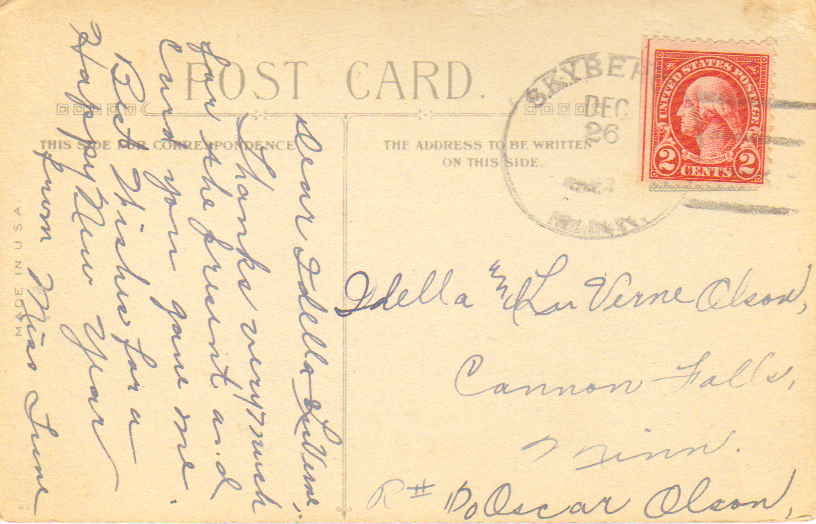 POST CARD.
THIS SIDE FOR CORRESPONDENCE
THE ADDRESS TO BE WRITTEN
ON THIS SIDE.
MADE IN U.S.A.
SKYBER
DEC
26
MINN.
UNITED STATES POSTAGE
2 CENTS 2
Dear Idella & LaVerne,
Thanks very much
for the present and
card you gave me.
Best Wishes for a
Happy New Year
from Miss June
Idella and LaVerne Olson,
Cannon Falls,
Minn.
R# % Oscar Olson,